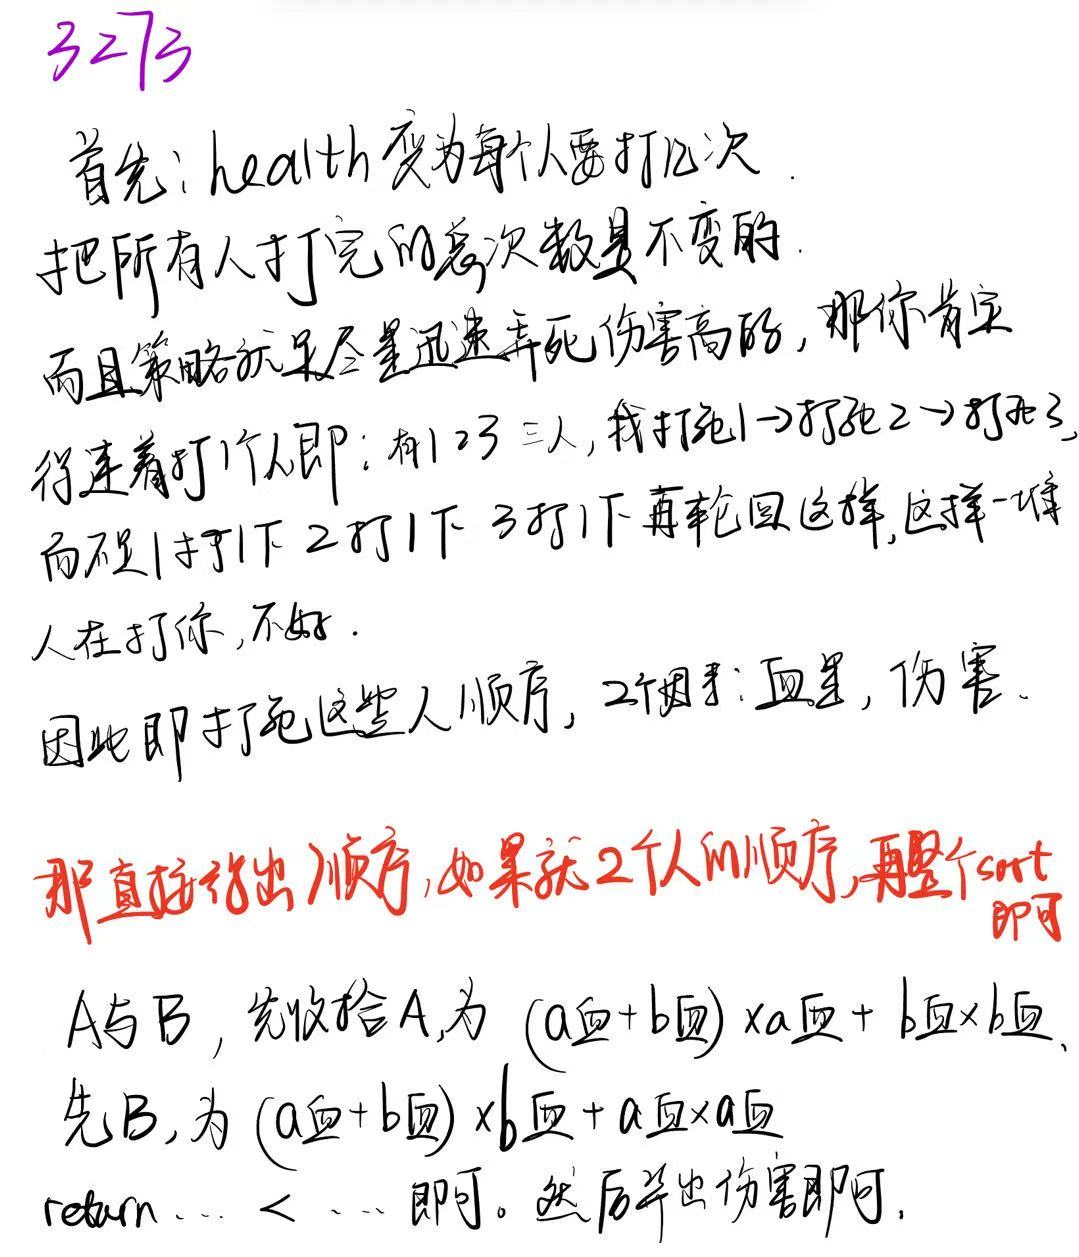 3273
首先：health变为每个人要打几次.
把所有人打完的总次数是不变的.
而且策略就是尽量迅速弄死伤害高的，那你肯定
得连着打1个人即：有123三人，我打死1→打死2→打死3，
而不是1打1下 2打1下 3打1下再轮回这样，这样一堆
人在打你，不好.
因此即打死这些人顺序，2个因素：血量，伤害.
那直接给出顺序，如果就2个人的顺序，再整个sort
即可
A与B，先收拾A，为 (a血+b血)×a血+b血×b血，
先B，为 (a血+b血)×b血+a血×a血
return … < … 即可。然后算出伤害即可.